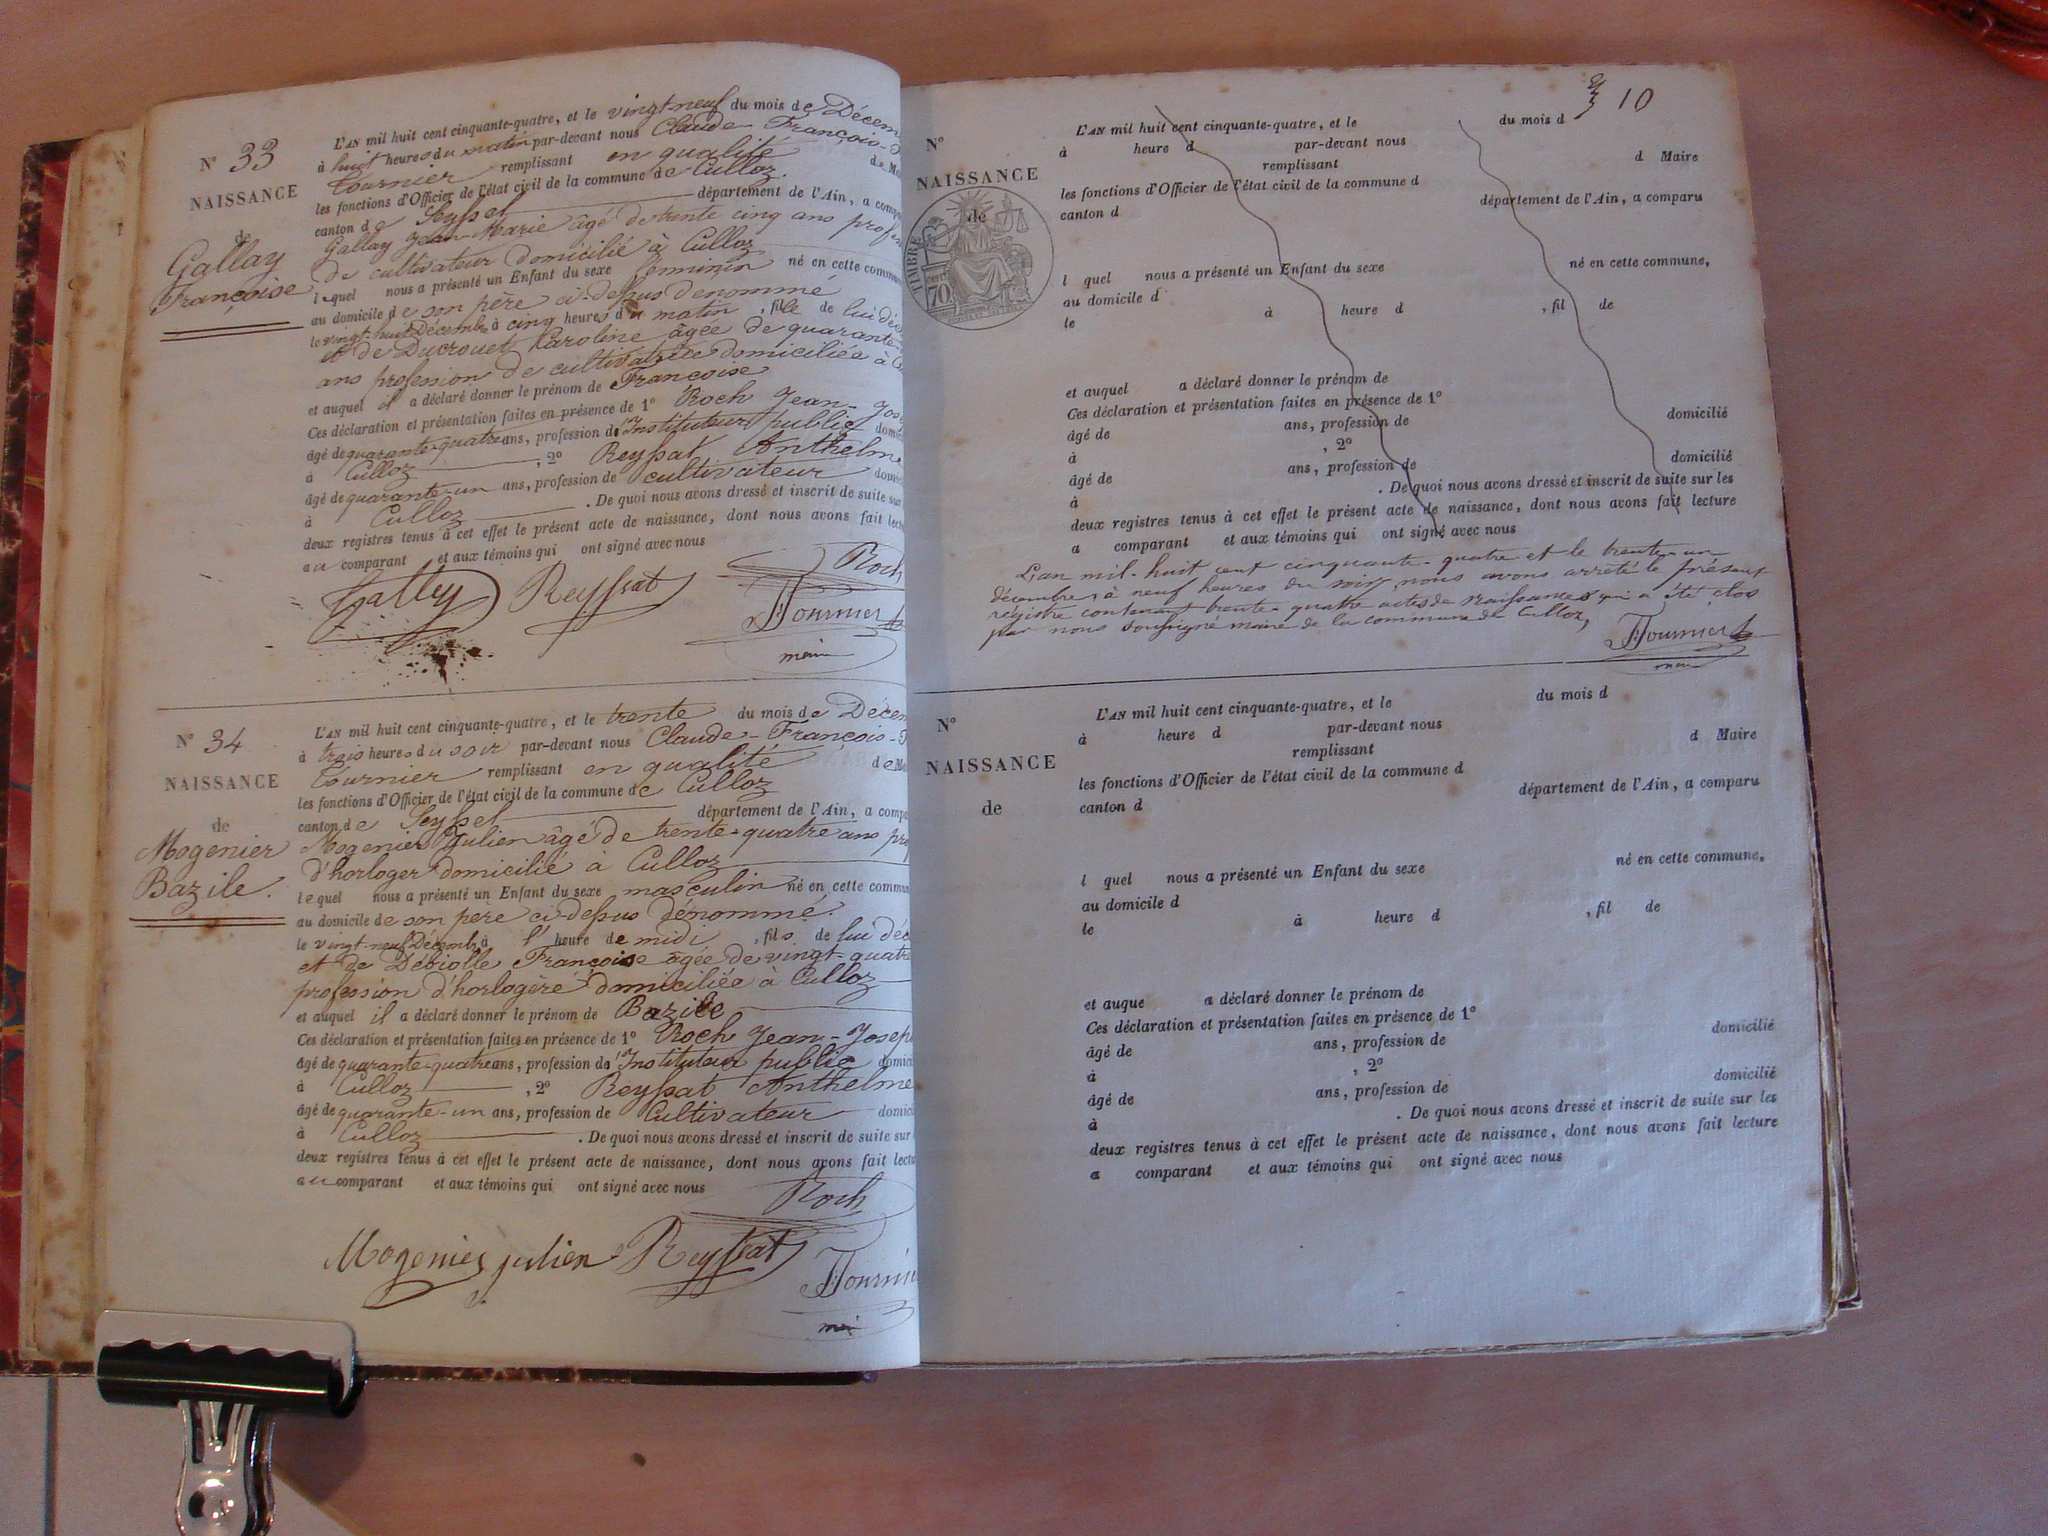 N° 33
NAISSANCE
de
Gallay
Françoise
L'AN mil huit cent cinquante-quatre, et le vingt-neuf du mois de Décem
à huit heures du matin par-devant nous Claude François-
Tournier remplissant en qualité de M
les fonctions d'Officier de l'état civil de la commune de Culloz.
canton de Seyssel département de l'Ain, a comp
Gallay Jean-Marie âgé de trente cinq ans profes
de cultivateur domicilié à Culloz
lequel nous a présenté un Enfant du sexe féminin né en cette commun
au domicile de son père ci-dessus denommé
le vingt-huit Décembre à cinq heures du matin, fille de lui déc
et de Ducrouet Karoline âgée de quarante-
ans profession de cultivatrice domiciliée à C
et auquel il a déclaré donner le prénom de Françoise
Ces déclaration et présentation faites en présence de 1° Roch Jean-Jos
âgé de quarante-quatre ans, profession d'Instituteur public domici
à Culloz, 2° Reyssat Anthelme
âgé de quarante-un ans, profession de cultivateur domici
à Culloz. De quoi nous avons dressé et inscrit de suite sur
deux registres tenus à cet effet le présent acte de naissance, dont nous avons fait lect
au comparant et aux témoins qui ont signé avec nous
Roch
Gallay Reyssat
Tournier
maire
N° 34
NAISSANCE
de
Mogenier
Bazile.
L'AN mil huit cent cinquante-quatre, et le trente du mois de Décem
à trois heures du soir par-devant nous Claude-François-T
Tournier remplissant en qualité de M
les fonctions d'Officier de l'état civil de la commune de Culloz
canton de Seyssel département de l'Ain, a comp
Mogenier Julien âgé de trente-quatre ans pro
d'horloger domicilié à Culloz
lequel nous a présenté un Enfant du sexe masculin né en cette commun
au domicile de son père ci-dessus dénommé.
le vingt-neuf Décembre à l' heure de midi, fils de lui déc
et de Débiolle Françoise âgée de vingt-quatre
profession d'horlogère domiciliée à Culloz
et auquel il a déclaré donner le prénom de Bazile
Ces déclaration et présentation faites en présence de 1° Roch Jean-Josep
âgé de quarante-quatre ans, profession d'Instituteur public domici
à Culloz, 2° Reyssat Anthelme
âgé de quarante-un ans, profession de Cultivateur domici
à Culloz. De quoi nous avons dressé et inscrit de suite sur
deux registres tenus à cet effet le présent acte de naissance, dont nous avons fait lectu
au comparant et aux témoins qui ont signé avec nous
Roch
Mogenier julien Reyssat
Tournier
10
N°
NAISSANCE
de
TIMBRE
70
L'AN mil huit cent cinquante-quatre, et le du mois d
à heure d par-devant nous
remplissant d Maire
les fonctions d'Officier de l'état civil de la commune d
canton d département de l'Ain, a comparu
l quel nous a présenté un Enfant du sexe né en cette commune,
au domicile d
le à heure d , fil de
et auquel a déclaré donner le prénom de
Ces déclaration et présentation faites en présence de 1°
âgé de ans, profession de domicilié
à , 2°
âgé de ans, profession de domicilié
à . De quoi nous avons dressé et inscrit de suite sur les
deux registres tenus à cet effet le présent acte de naissance, dont nous avons fait lecture
a comparant et aux témoins qui ont signé avec nous
L'an mil-huit cent cinquante-quatre et le trente-un
décembre, à neuf heures du soir, nous avons arrêté le présent
régistre contenant trente-quatre actes de naissances qui a été clos
par nous soussigné maire de la commune de Culloz,
Tournier
maire
N°
NAISSANCE
de
L'AN mil huit cent cinquante-quatre, et le du mois d
à heure d par-devant nous
remplissant d Maire
les fonctions d'Officier de l'état civil de la commune d
canton d département de l'Ain, a comparu
l quel nous a présenté un Enfant du sexe né en cette commune,
au domicile d
le à heure d , fil de
et auque a déclaré donner le prénom de
Ces déclaration et présentation faites en présence de 1°
âgé de ans, profession de domicilié
à , 2°
âgé de ans, profession de domicilié
à . De quoi nous avons dressé et inscrit de suite sur les
deux registres tenus à cet effet le présent acte de naissance, dont nous avons fait lecture
a comparant et aux témoins qui ont signé avec nous